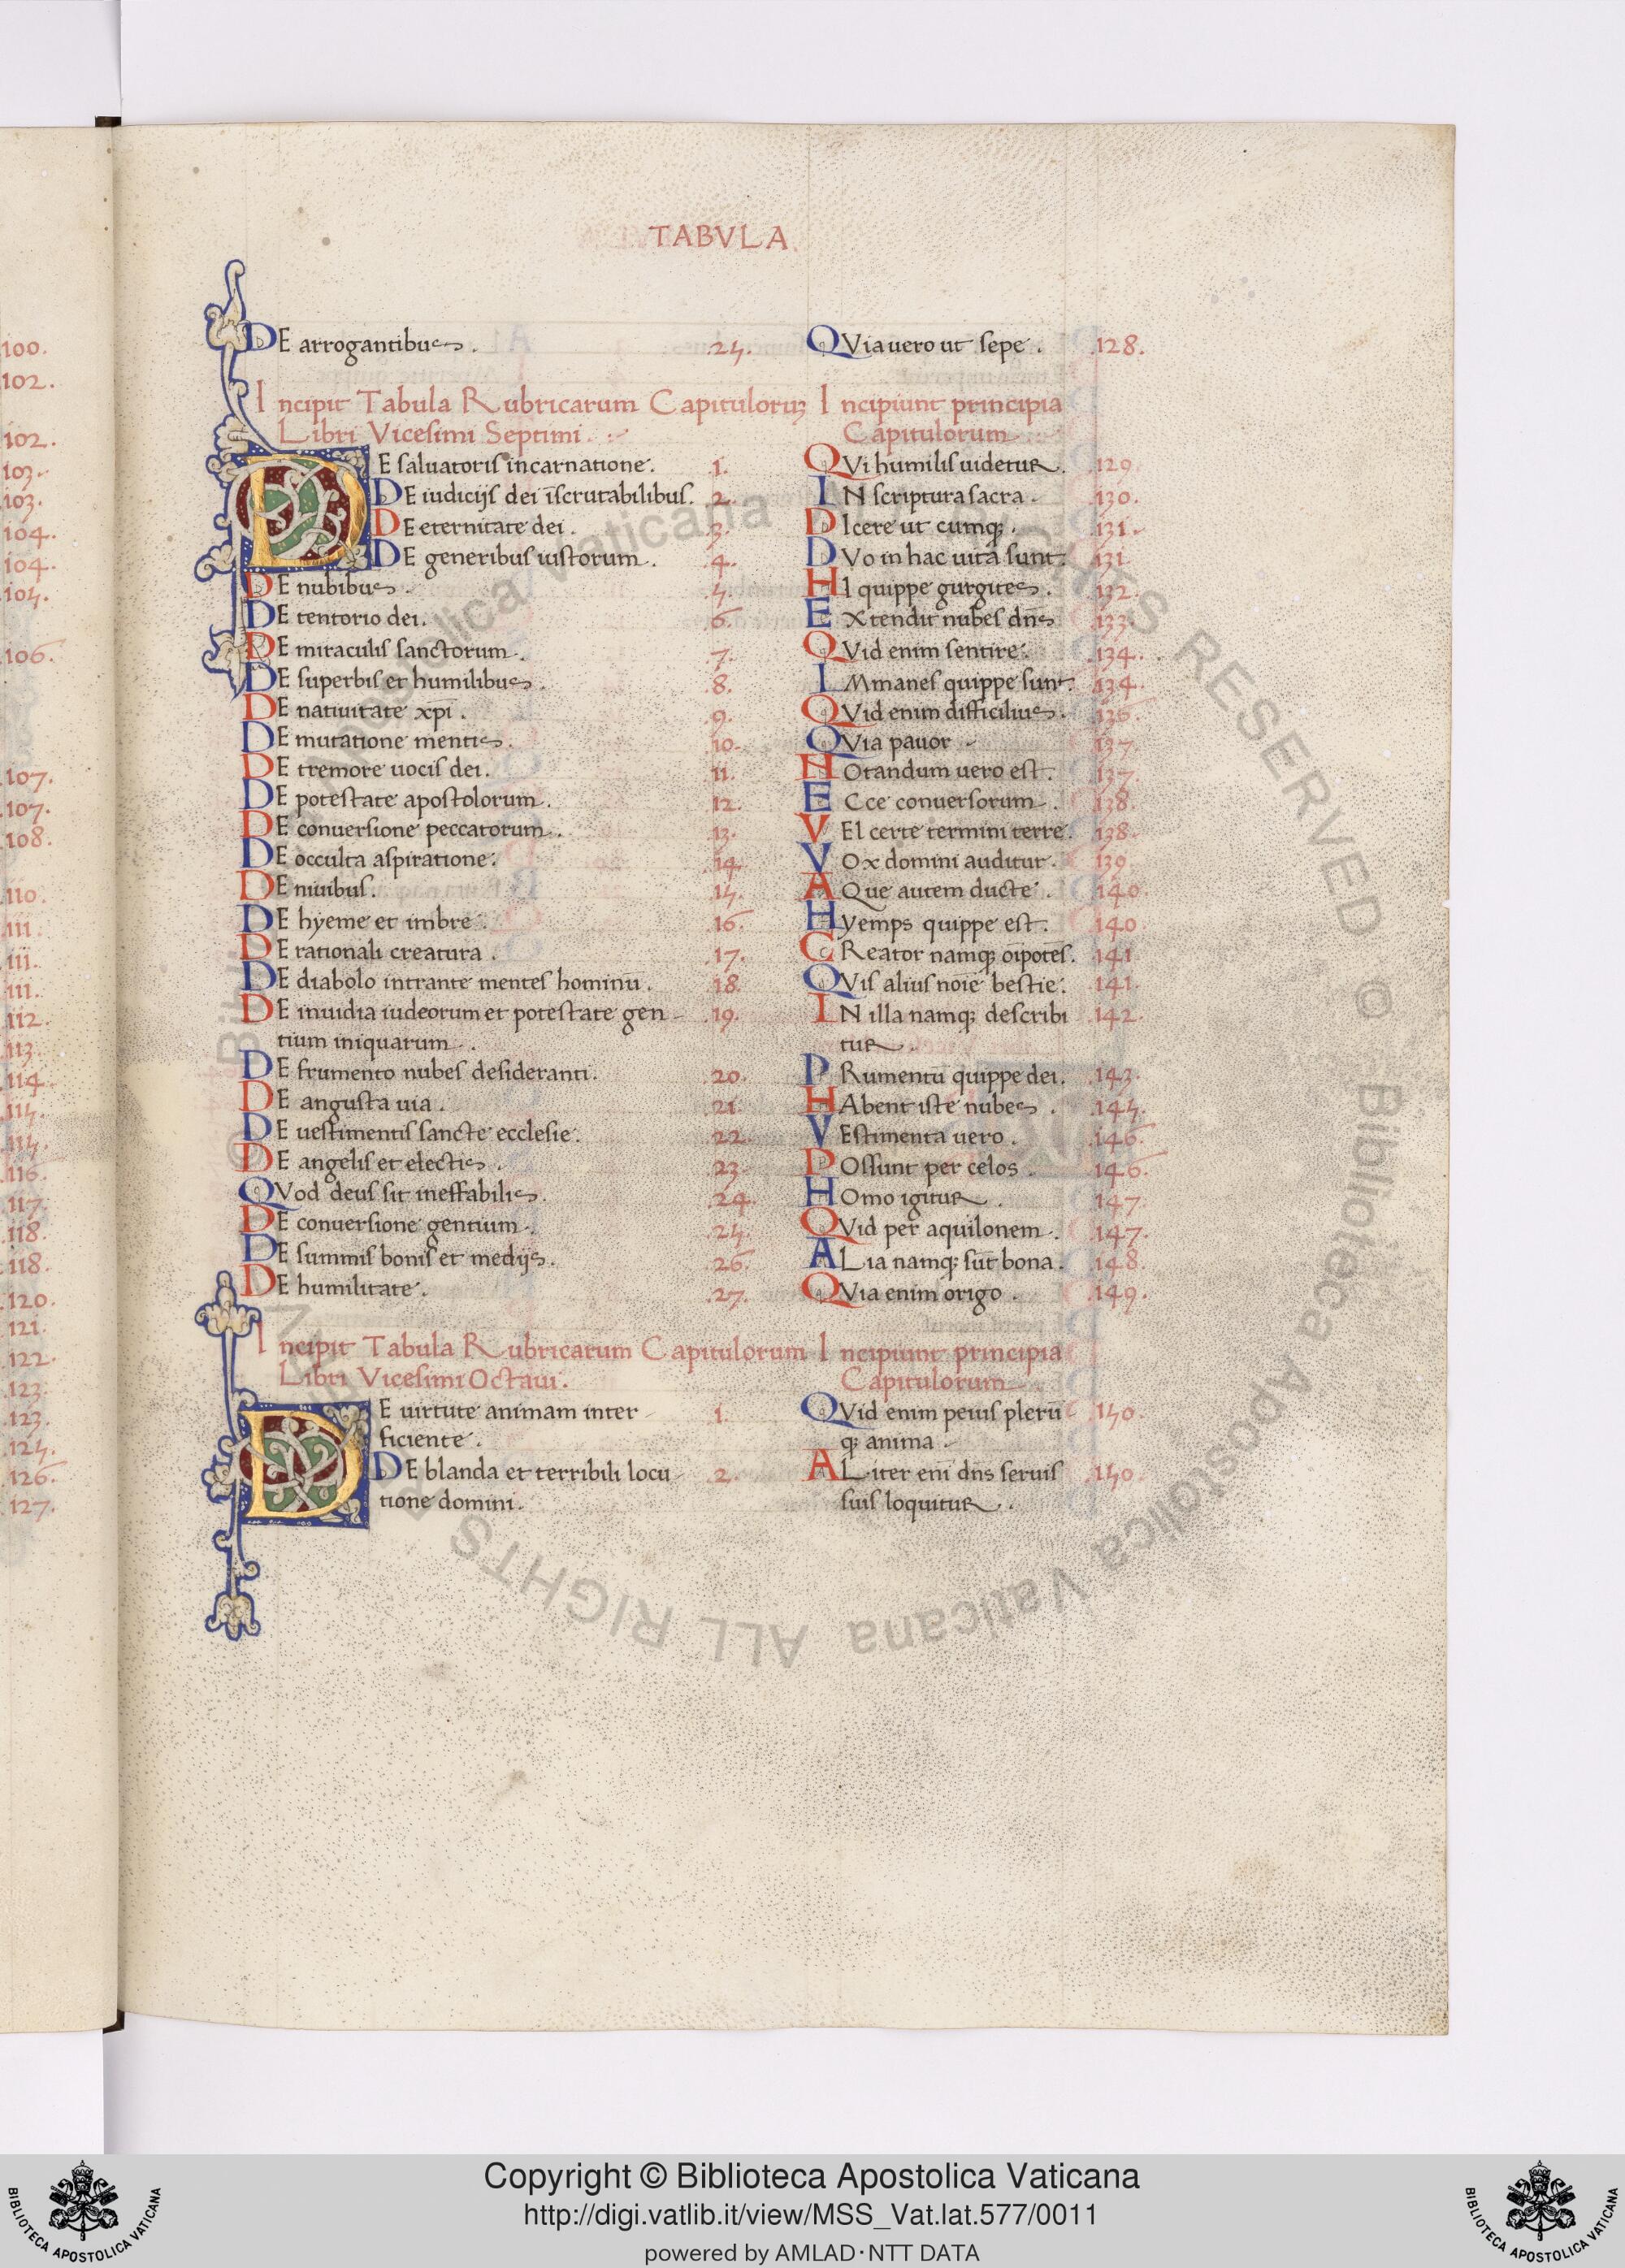 TABVLA
DE arrogantibus. .24. QVia uero ut sepe. .128.
Incipit Tabula Rubricarum Capitulorꝝ Incipiunt principia
Libri Vicesimi Septimi. Capitulorum
DE saluatoris incarnatione. .1. QVi humilis uidetur. .129.
DE iudicijs dei īscrutabilibus. .2. IN scriptura sacra. .130.
DE eternitate dei. .3. DIcere ut cumq;. .131.
DE generibus iustorum. .4. DVo in hac uita sunt. .131.
DE nubibus. .5. HI quippe gurgites. .132.
DE tentorio dei. .6. EXtendit nubes dn̄s .133.
DE miraculis sanctorum. .7. QVid enim sentire. .134.
DE superbis et humilibus. .8. IMmanes quippe sunt. .134.
DE natiuitate xpi. .9. QVid enim difficilius. .136.
DE mutatione mentis. .10. QVia pauor .137.
DE tremore uocis dei. .11. NOtandum uero est. .137.
DE potestate apostolorum. .12. ECce conuersorum. .138.
DE conuersione peccatorum. .13. VEl certe termini terre. .138.
DE occulta aspiratione. .14. VOx domini auditur. .139.
DE niuibus. .15. AQue autem ducte. .140.
DE hyeme et imbre. .16. Hyemps quippe est. .140.
DE rationali creatura. .17. CReator namq; oīpotēs. .141.
DE diabolo intrante mentes hominū. .18. QVis alius noīe bestie. .141.
DE inuidia iudeorum et potestate gen- .19. IN illa namq; describi .142.
tium iniquarum. tur.
DE frumento nubes desideranti. .20. PRumentū quippe dei. .143.
DE angusta uia. .21. HAbent iste nubes. .145.
DE uestimentis sancte ecclesie. .22. VEstimenta uero. .146.
DE angelis et electis. .23. POssunt per celos. .146.
QVod deus sit ineffabilis. .24. HOmo igitur. .147.
DE conuersione gentium. .25. QVid per aquilonem. .147.
DE summis bonis et medijs. .26. ALia namq; sūt bona. .148.
DE humilitate. .27. QVia enim origo. .149.
Incipit Tabula Rubricarum Capitulorum Incipiunt principia
Libri Vicesimi Octaui. Capitulorum
DE uirtute animam inter- .1. QVid enim peius plerū .150.
ficiente. q; anima.
DE blanda et terribili locu- .2. ALiter eni dn̄s seruis .150.
tione domini. suis loquitur.
100.
102.
102.
103.
103.
104.
104.
105.
106.
107.
107.
108.
110.
111.
111.
111.
112.
113.
114.
115.
115.
116.
117.
118.
118.
120.
121.
122.
123.
123.
125.
126.
127.
© Biblioteca Apostolica Vaticana ALL RIGHTS RESERVED
© Biblioteca Apostolica Vaticana ALL RIGHTS
Copyright © Biblioteca Apostolica Vaticana
http://digi.vatlib.it/view/MSS_Vat.lat.577/0011
powered by AMLAD·NTT DATA
BIBLIOTECA APOSTOLICA VATICANA
BIBLIOTECA APOSTOLICA VATICANA